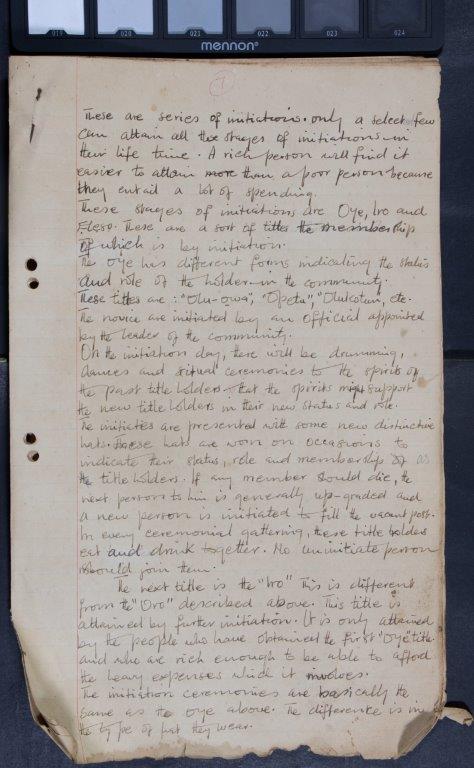 019 020 021 022 023 024
mennon
7
These are series of initiations. only a select few
can attain all the stages of initiations in
their life time. A rich person will find it
easier to attain more than a poor person because
they entail a lot of spending.
These stages of initiations are Oye, Iro and
These are a sort of titles the membership
of which is by initiation.
The Oye has different forms indicating the status
and role of the holder in the community.
These titles are: "Olu-owa", "Opetu", "Olukotun, etc.
The novice are initiated by an official appointed
by the leader of the community.
On the initiation day, there will be drumming,
dances and ritual ceremonies to the spirits of
the past title holders, that the spirits might support
the new title holders in their new status and role.
The initiates are presented with some new distinctive
hats. These hats are worn on occasions to
indicate their status, role and membership of
the title holders. If any member should die, the
next person to him is generally up-graded and
a new person is initiated to fill the vacant post.
In every ceremonial gathering, these title holders
eat and drink together. No uninitiate person
should join them.
The next title is the "Iro" This is different
from the "Oro" described above. This title is
attained by further initiation. It is only attained
by the people who have obtained the first "Oye" title
and who are rich enough to be able to afford
the heavy expenses which it involves.
The initiation ceremonies are basically the
same as the oye above. The difference is in
the type of hat they wear.